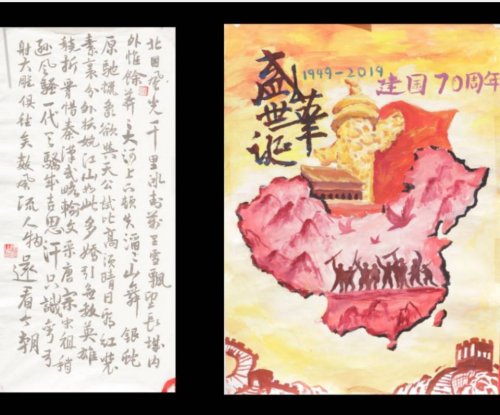 北国风光千里冰封万里雪飘望长城内
外惟餘莽莽大河上下顿失滔滔山舞银蛇
原驰蜡象欲与天公试比高须晴日看红装
素裹分外妖娆江山如此多娇引无数英雄
竞折腰惜秦皇汉武略输文采唐宗宋祖稍
逊风骚一代天骄成吉思汗只识弯弓
射大雕俱往矣数风流人物还看今朝
盛世華诞
1949-2019
建国70周年